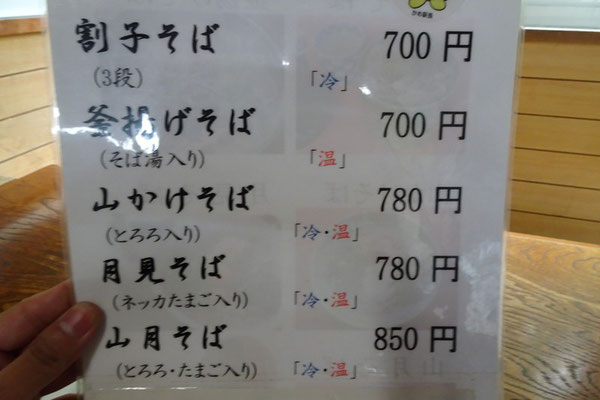 割子そば 700円
(3段) 「冷」
釜揚げそば 700円
(そば湯入り) 「温」
山かけそば 780円
(とろろ入り) 「冷・温」
月見そば 780円
(ネッカたまご入り) 「冷・温」
山月そば 850円
(とろろ・たまご入り) 「冷・温」